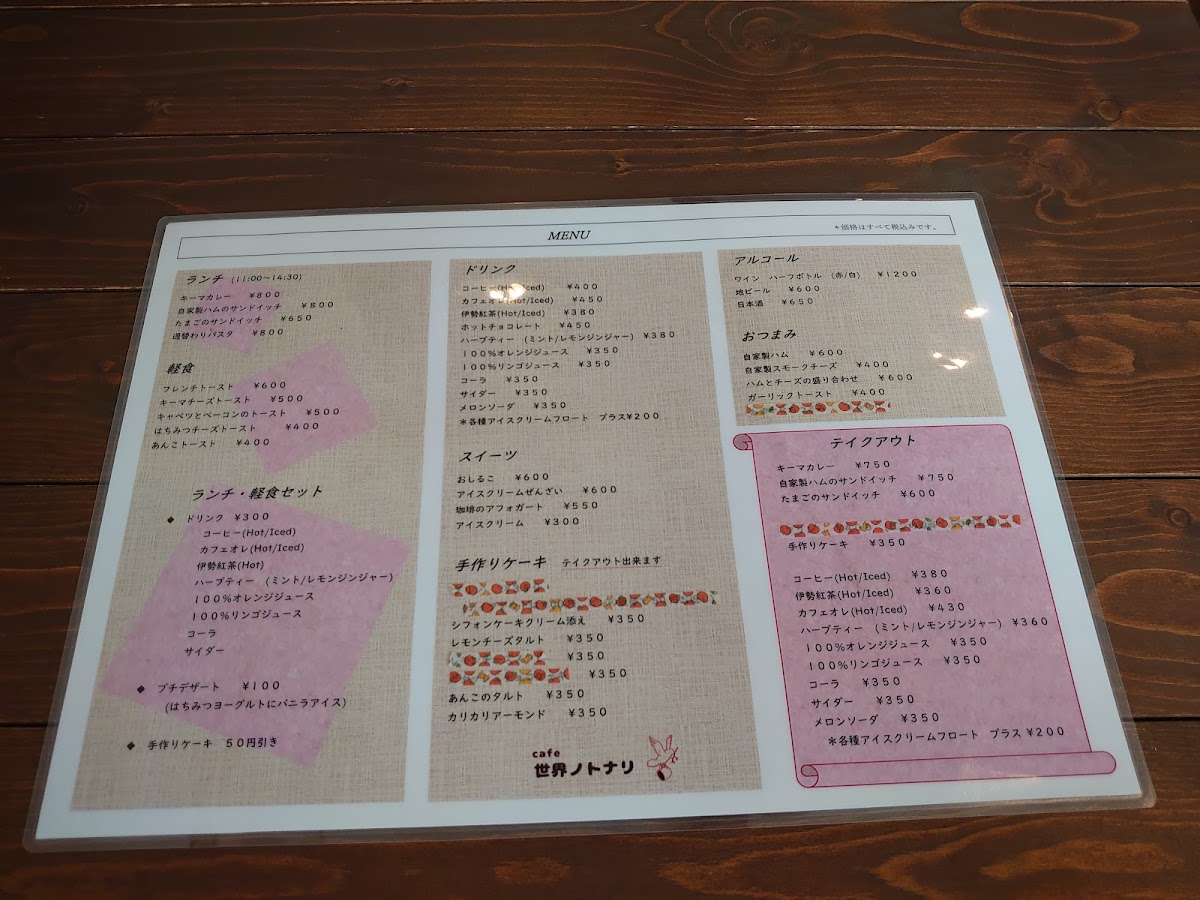 MENU
*価格はすべて税込みです。
ランチ (11:00~14:30)
キーマカレー ¥800
自家製ハムのサンドイッチ ¥800
たまごのサンドイッチ ¥650
週替わりパスタ ¥800
軽食
フレンチトースト ¥600
キーマチーズトースト ¥500
キャベツとベーコンのトースト ¥500
はちみつチーズトースト ¥400
あんこトースト ¥400
ランチ・軽食セット
◆ ドリンク ¥300
コーヒー(Hot/Iced)
カフェオレ(Hot/Iced)
伊勢紅茶(Hot)
ハーブティー (ミント/レモンジンジャー)
100%オレンジジュース
100%リンゴジュース
コーラ
サイダー
◆ プチデザート ¥100
(はちみつヨーグルトにバニラアイス)
◆ 手作りケーキ 50円引き
ドリンク
コーヒー(Hot/Iced) ¥400
カフェオレ(Hot/Iced) ¥450
伊勢紅茶(Hot/Iced) ¥380
ホットチョコレート ¥450
ハーブティー (ミント/レモンジンジャー) ¥380
100%オレンジジュース ¥350
100%リンゴジュース ¥350
コーラ ¥350
サイダー ¥350
メロンソーダ ¥350
*各種アイスクリームフロート プラス¥200
スイーツ
おしるこ ¥600
アイスクリームぜんざい ¥600
珈琲のアフォガート ¥550
アイスクリーム ¥300
手作りケーキ テイクアウト出来ます
シフォンケーキクリーム添え ¥350
レモンチーズタルト ¥350
¥350
¥350
あんこのタルト ¥350
カリカリアーモンド ¥350
cafe
世界ノトナリ
アルコール
ワイン ハーフボトル (赤/白) ¥1200
地ビール ¥600
日本酒 ¥650
おつまみ
自家製ハム ¥600
自家製スモークチーズ ¥400
ハムとチーズの盛り合わせ ¥600
ガーリックトースト ¥400
テイクアウト
キーマカレー ¥750
自家製ハムのサンドイッチ ¥750
たまごのサンドイッチ ¥600
手作りケーキ ¥350
コーヒー(Hot/Iced) ¥380
伊勢紅茶(Hot/Iced) ¥360
カフェオレ(Hot/Iced) ¥430
ハーブティー (ミント/レモンジンジャー) ¥360
100%オレンジジュース ¥350
100%リンゴジュース ¥350
コーラ ¥350
サイダー ¥350
メロンソーダ ¥350
*各種アイスクリームフロート プラス ¥200